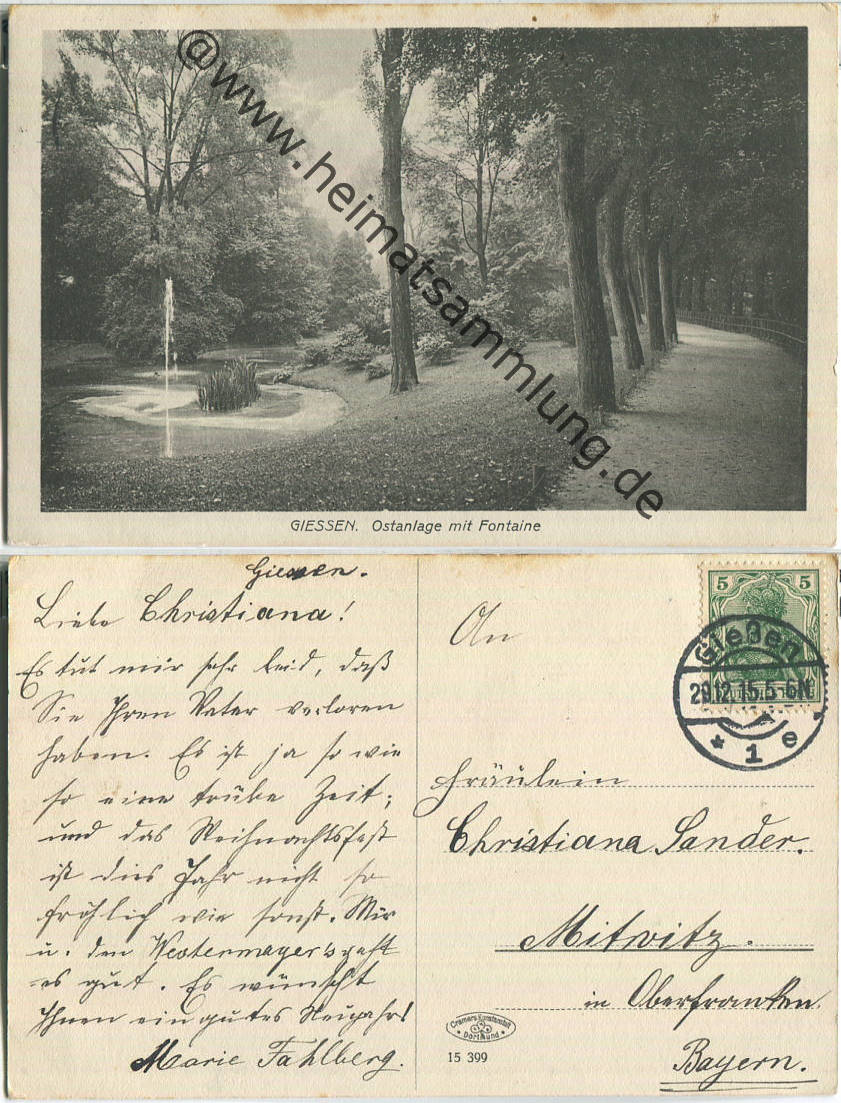 @www.heimatsammlung.de
GIESSEN. Ostanlage mit Fontaine
Giessen.
Liebe Christiana!
Es tut mir sehr leid, daß
Sie Ihren Vater verloren
haben. Es ist ja so wie
so eine trübe Zeit;
und das Weihnachtsfest
ist dies Jahr nicht so
fröhlich wie sonst. Mir
u. den Westermayer's geht
es gut. Es wünscht
Ihnen ein gutes Neujahr!
Marie Fahlberg.
An
Fräulein
Christiana Sander.
Mitwitz.
in Oberfranken.
Bayern.
5 5
Gießen
29.12.15.5-6N
* 1 e
Cramers Kunstanstalt
Dortmund
15 399